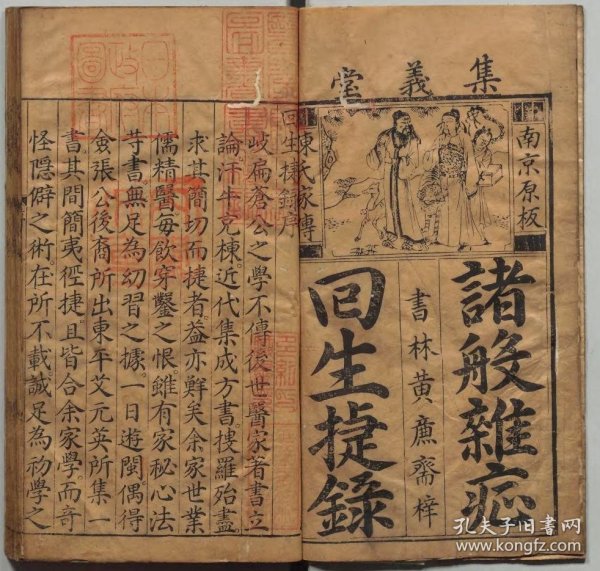 集義堂
南京原板
諸般雜症
書林黃廉齋梓
回生捷錄
陳氏家傳
回生捷錄序
岐扁蒼公之學不傳後世醫家著書立
論汗牛充棟近代集成方書摟羅殆盡
求其簡切而捷者益亦鮮矣余家世業
儒精醫每飲穿鑿之恨雖有家秘心法
等書無足為幼習之據一日遊閩偶得
僉張公後裔所出東平艾元英所集一
書其間簡夷徑捷且皆合余家學而奇
怪隱僻之術在所不載誠足為初學之
孔夫子旧书网
www.kongfz.com